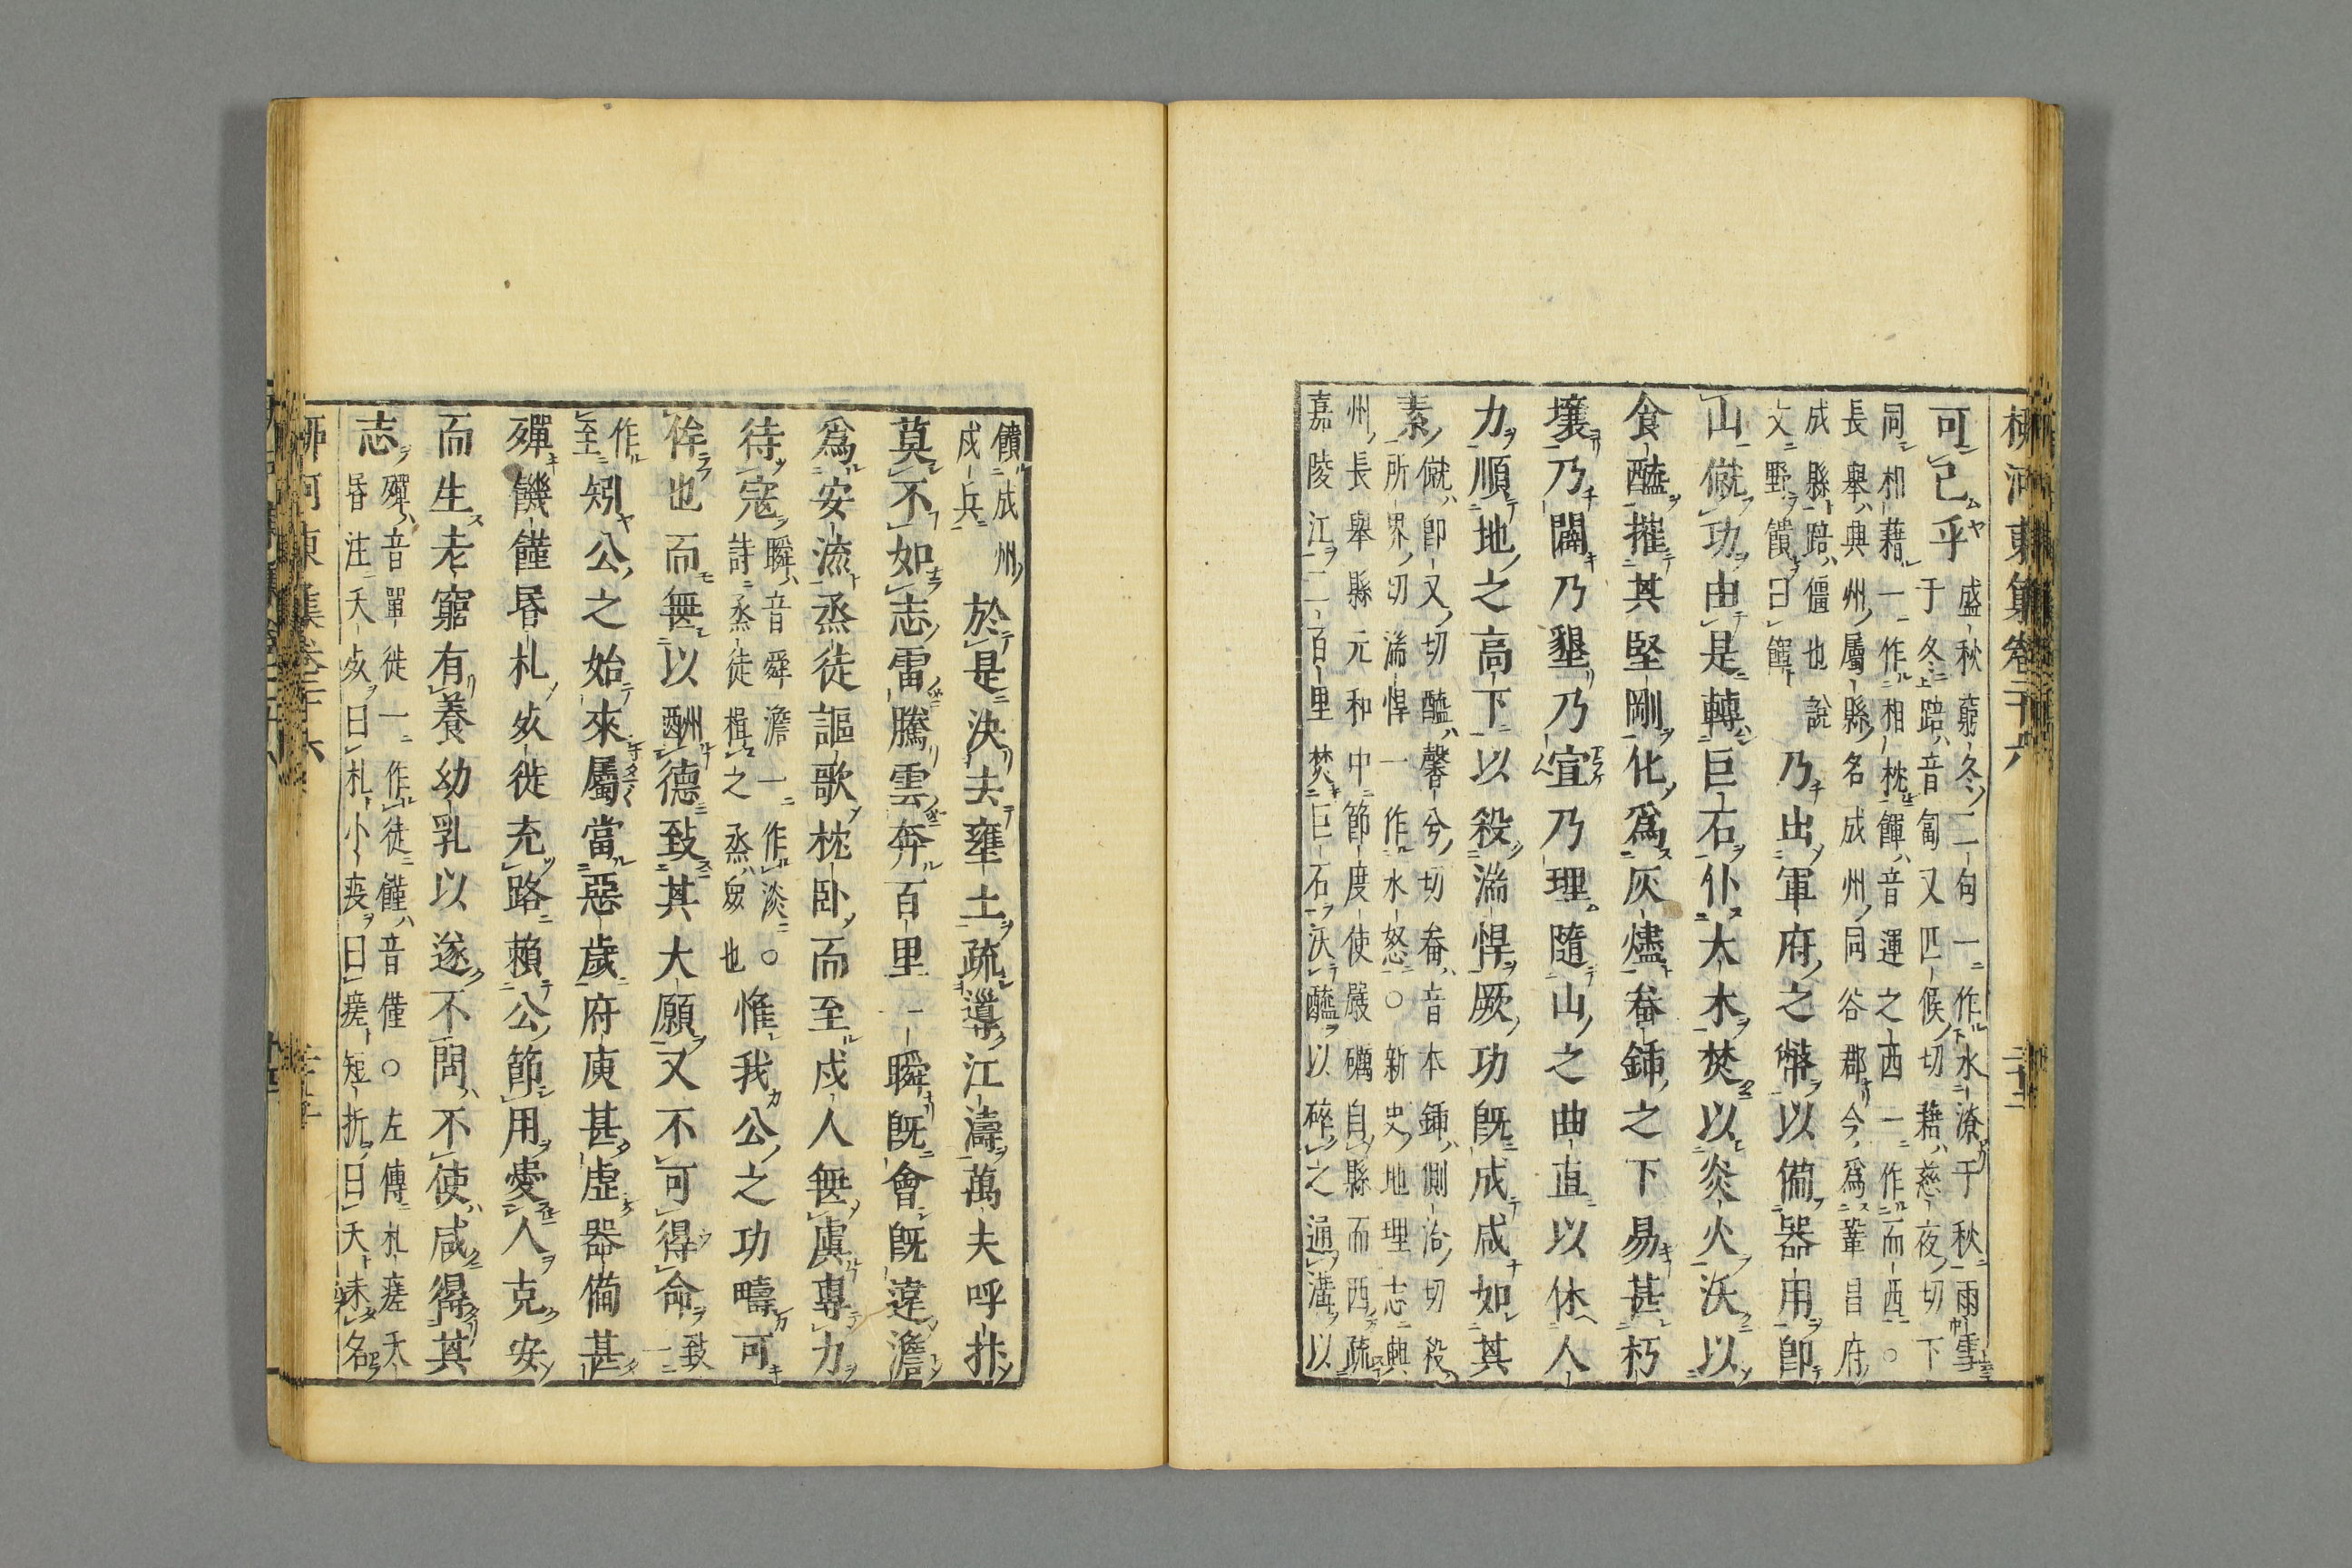 柳河東集卷二十六 二十二
可已乎
盛秋窮冬二句一作水潦于秋雨雪
于冬踣音匐又匹候切藉慈夜切下
同相藉一作相枕餫音運之西一作而西○
長舉典州屬縣名成州同谷郡今爲鞏昌府
成縣踣僵也說
文野饋曰餫
乃出軍府之幣以備器用卽
山僦功由是轉巨石仆大木焚以炎火沃以
食醯摧其堅剛化爲灰燼畚鍤之下易甚朽
壤乃闢乃墾乃宣乃理隨山之曲直以休人
力順地之高下以殺湍悍厥功旣成咸如其
素
僦卽又切醯馨兮切畚音本鍤側洽切殺
所界切湍悍一作水怒○新史地理志興
州長舉縣元和中節度使嚴礪自縣而西疏
嘉陵江二百里焚巨石沃醯以碎之通溝以
饋成州
戍兵
於是決去壅土疏導江濤萬夫呼抃
莫不如志雷騰雲奔百里一瞬旣會旣遠澹
爲安流烝徒謳歌枕卧而至戍人無虞專力
待寇
瞬音舜澹一作淡○
詩烝徒楫之烝衆也
惟我公之功疇可
侔也而無以酬德致其大願又不可得命
一致
作至
矧公之始來屬當惡歲府庾甚虛器備甚
殫饑饉昬札死徙充路賴公節用愛人克安
而生老窮有養幼乳以遂不問不使咸得其
志
殫音單徙一作徒饉音僅○左傳札瘥夭
昬注夭死曰札小疫曰瘥短折曰夭未名
柳河東集卷二十六